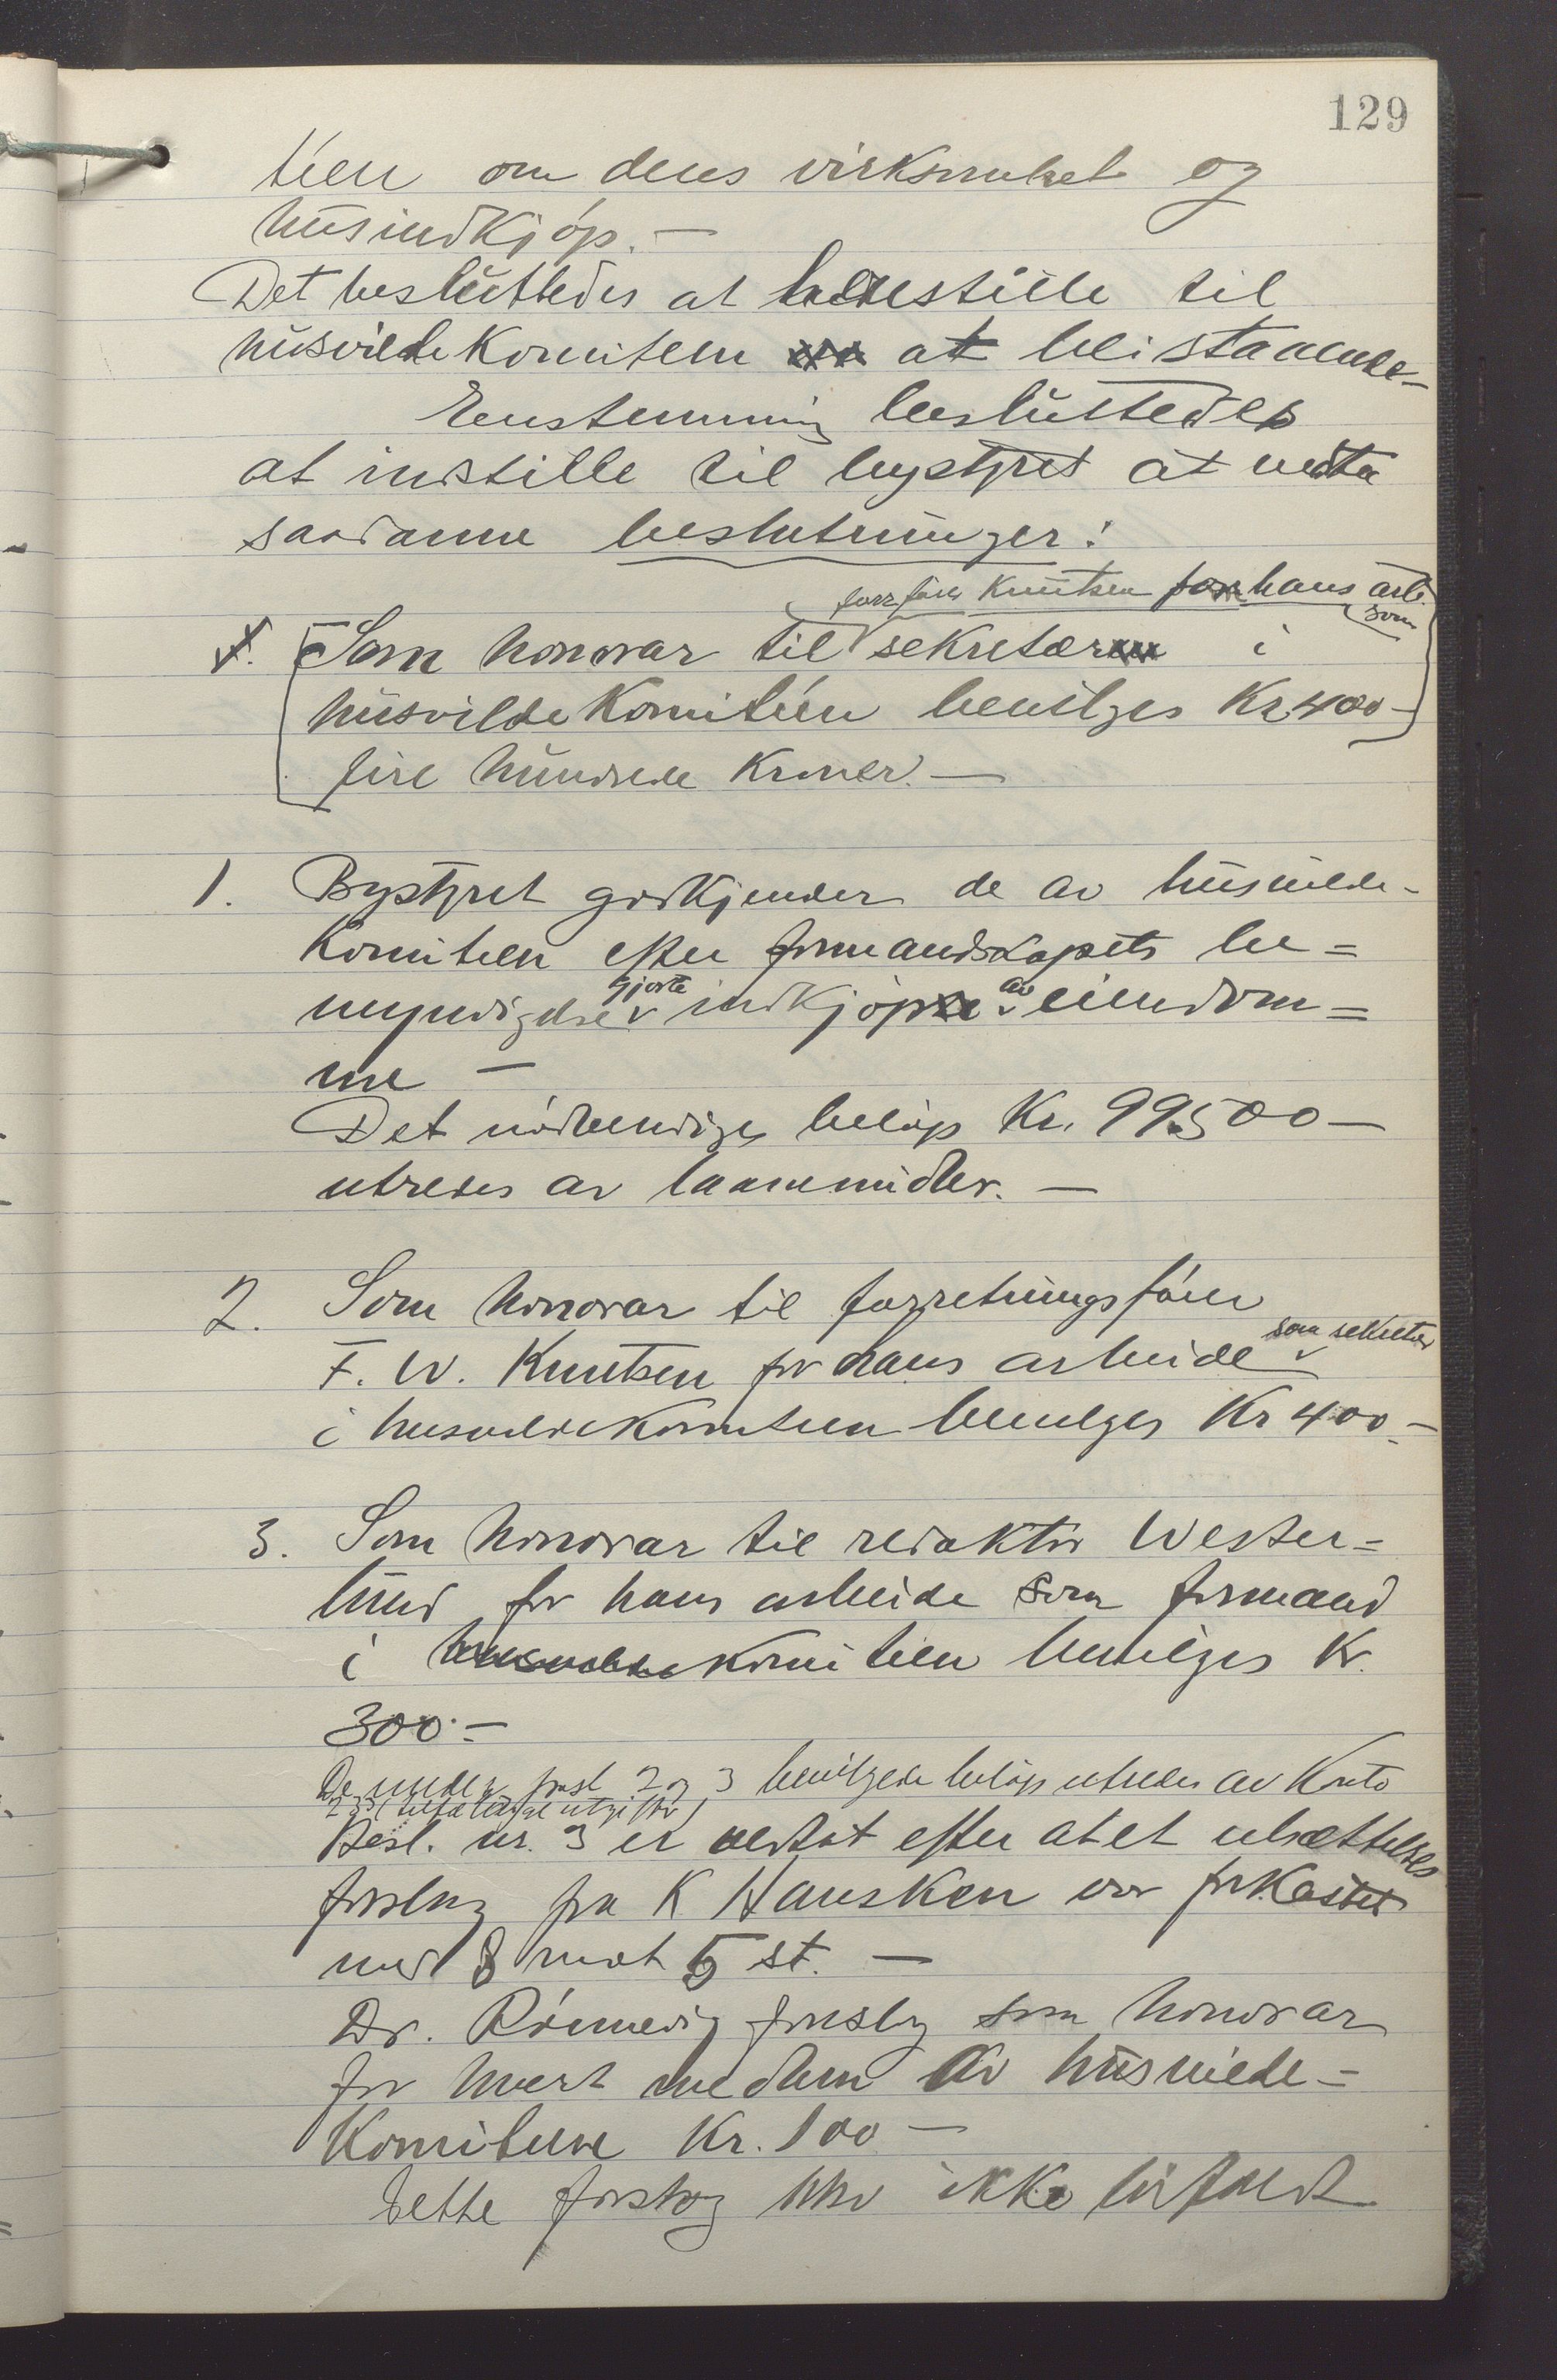 129
tien om dens virksomhet og
husindkjøp. —
Det besluttedes at henstille til
husvildekomiteen at bli staaende —
Enstemmig besluttedes
at instille til bystyret at vedta
saadanne beslutninger:
forr.fører Knutsen for hans arb.
som
1. Som honorar til sekretæren i
husvildekomiteen bevilges Kr 400 —
fire hundrede Kroner. —
1. Bystyret godkjender de av husvilde-
komiteen efter formandskapets be=
gjorte av
myndigelse indkjøp eiendom=
me —
Det nødvendige beløp Kr. 99500 —
utredes av laanemidler. —
2. Som honorar til forretningsfører
som sekretær
F. W. Knutsen for hans arbeide
i husvildekomiteen bevilges Kr 400. —
3. Som honorar til redaktør Wester=
lund for hans arbeide som formand
i husvildekomiteen bevilges Kr.
300. —
De under post 2 og 3 bevilgede beløp utredes av Konto
(tilfældige utgifter)
Besl. nr. 3 er vedtat efter at et utsættelses
forslag fra K Hausken var forkastet
med 8 mot 5 st. —
Dr. Rønnevig foreslog som honorar
for hvert medlem av husvilde=
komiteen Kr. 100 —
Dette forslag blev ikke bifaldt